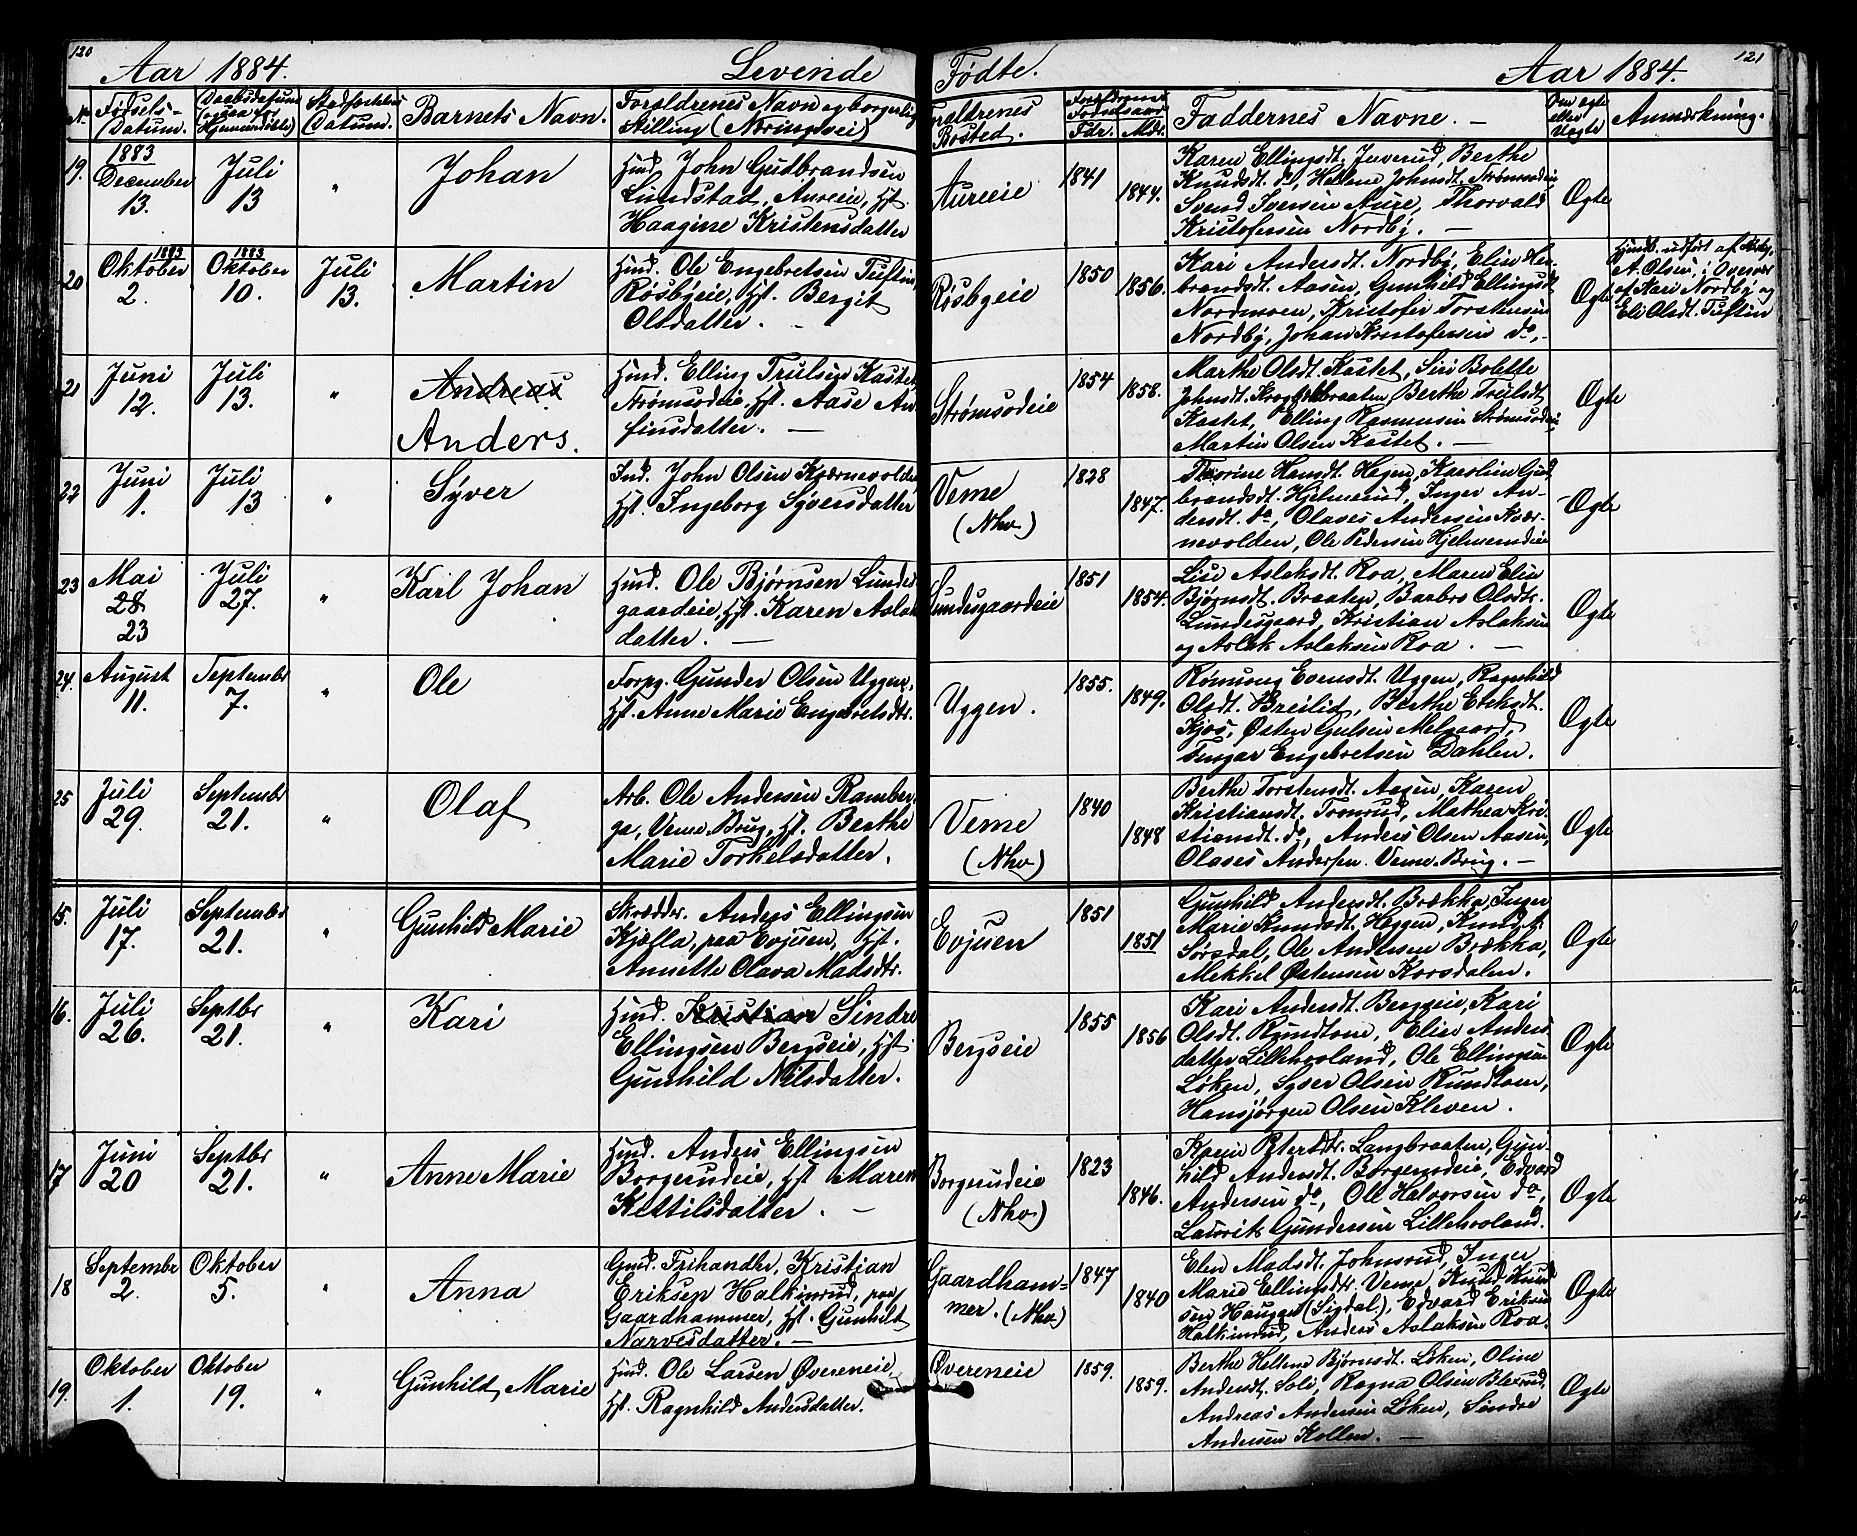 120
Aar 1884.
Levende
Fødte.
Aar 1884.
121
No
Fødsels-
Datum.
Daabsdatum
(ogsaa for
Hjemmedøbte)
Stadfæstelses
Datum.
Barnets Navn.
Forældrenes Navn og borgerlig
Stilling (Næringsvei)
Forældrenes
Bosted.
Forældrenes
Fødselsaar
Fdr.
Mdr.
Faddernes Navne. —
Om ægte
eller
Uægte
Anmærkning.
19.
1883
December
13.
Juli
13
"
Johan
Hmd. John Gudbrandsen
Lundstad, Aureeie, Hst.
Haagine Kristensdatter
Aureeie
1841
1844.
Karen Ellingsdt. Juverud, Berthe
Knudsdt. do, Hellene Johnsdt. Strømsodeie,
Svend Svensen Aure, Thorvald
Kristofersen Nordby. —
Ægte
20
1883
Oktober
2.
1883
Oktober
10.
Juli
13.
Martin
Hmd. Ole Engebretsen Tuftin,
Røsbyeie, Hst. Bergit
Olsdatter.
Røsbyeie
1850
1856.
Kari Andersdt. Nordby, Elin Hel-
brandsdt. Aasen, Gunhild Ellingsdt
Nordmoen, Kristofer Torstensen
Nordby, Johan Kristofersen do, -
Ægte
Hjmdt. udført af
A. Olsen, i Overvær
af Kari Nordby og
Eli Olsdt. Tuftin
21
Juni
12.
Juli
13.
"
Andreas
Anders.
Hmd. Elling Trulsen Kastet
Strømsodeie, Hst. Aase An-
finsdatter. —
Strømsodeie
1854
1858.
Marthe Olsdt. Kastet, Siri Bolette
Johnsdt. Berthe Trulsdt
Kastet, Elling Rasmussen Strømsodeie
Martin Olsen Kastet. —
Ægte
22
Juni
1.
Juli
13
"
Syver
Ind. John Olsen Kværnevolden
Hst. Ingeborg Syversdatter
Veme
(Nhv.)
1828
1847.
Thorine Hansdt. Hagen, Karoline Gud-
brandsdt. Hjelmerud, Inger An-
dersdt. do, Olaves Andersen Kvær-
nevolden, Ole Pedersen Hjelmerudeie
Ægte
23
Mai
28
23
Juli
27.
"
Karl Johan
Hmd. Ole Bjørnsen Lundes-
gaardeie, Hst. Karen Aslaks-
datter. —
Lundesgaardeie
1851
1854.
Lise Aslaksdt. Roa, Maren Elin
Bjørnsdt. Braaten, Barbro Olsdtr.
Lundesgaard, Kristian Aslaksen
og Aslak Aslaksen Roa. —
Ægte
24.
August
11.
Septembr
7.
"
Ole
Forpg. Gunder Olsen Uggen,
Hst. Anne Marie Engebretsdtr.
Uggen.
1855.
1849.
Rønnoug Evensdt. Uggen, Ragnhild
Olsdt. Breilid, Berthe Eriksdt.
Kjøs, Østen Gulsen Melgaard,
Tingar Engebretsen Dahlen.
Ægte
25
Juli
29.
Septembr
21.
"
Olaf
Arb. Ole Andersen Ramber-
ge, Veme Brug, Hst. Berthe
Marie Torkelsdatter.
Veme
(Nhv.)
1840
1848
Berthe Torstensdt. Aasen, Karen
Kristiansdt. Tronrud, Mathea Kri-
stiansdt. do, Anders Olsen Aasen,
Olaves Andersen Veme Brug. —
Ægte
15.
Juli
17.
Septembr
21.
"
Gunhild Marie
Skrædder. Anders Ellingsen
Kjølla, paa Evjuen, Hst.
Annette Olava Madsdtr.
Evjuen
1851
1851
Gunhild Andersdt. Brækka, Inger
Marie Knudsdt. Heggen, Knud
Sørsdal, Ole Andersen Brækka,
Mekkel Østensen Korsdalen.
Ægte
16.
Juli
26.
Septbr
21.
"
Kari
Hmd. Kristian Sindre
Ellingsen Bergseie, Hst.
Gunhild Nilsdatter.
Bergseie
1855
1856
Kari Andersdt. Bergseie, Kari
Olsdt. Rundtom, Elin Anders
datter Lillehvoland, Ole Ellingsen
Løken, Syver Olsen Rundtom,
Hansjørgen Olsen Kleven.
Ægte
17
Juni
20
Septbr
21.
"
Anne Marie
Hmd. Anders Ellingsen
Borgerudeie, Hst Maren
Kittilsdatter. —
Borgerudeie
(Nhv.)
1823
1846.
Karen Petersdtr. Langbraaten, Gun-
hild Andersdt. Borgerudeie, Edvard
Andersen do, Ole Halvorsen do,
Laurits Gundersen Lillehvoland.
Ægte
18
September
2.
Oktober
5.
"
Anna
Gmd. Frihandler, Kristian
Eriksen Halkinrud, paa
Gaardhammer, Hst. Gunhild
Narvesdatter. —
Gaardham-
mer. (Nhv.)
1847
1840
Elen Madsdt. Johnsrud, Inger
Marie Ellingsdtr. Veme, Knud Knud-
sen Haugen (Sigdal), Edvard Eriksen
Halkinrud, Anders Aslaksen Roa.
Ægte
19.
Oktober
1.
Oktober
19.
"
Gunhild Marie
Hmd. Ole Larsen Øvereneie,
Hst. Ragnhild Andersdatter.
Øvereneie
1859.
1859.
Berthe Hellene Bjørnsdt. Løken, Oline
Andersdt. Soli, Ragna Olsen
Andreas Andersen Løken, Sindre
Andersen Kollen. —
Ægte